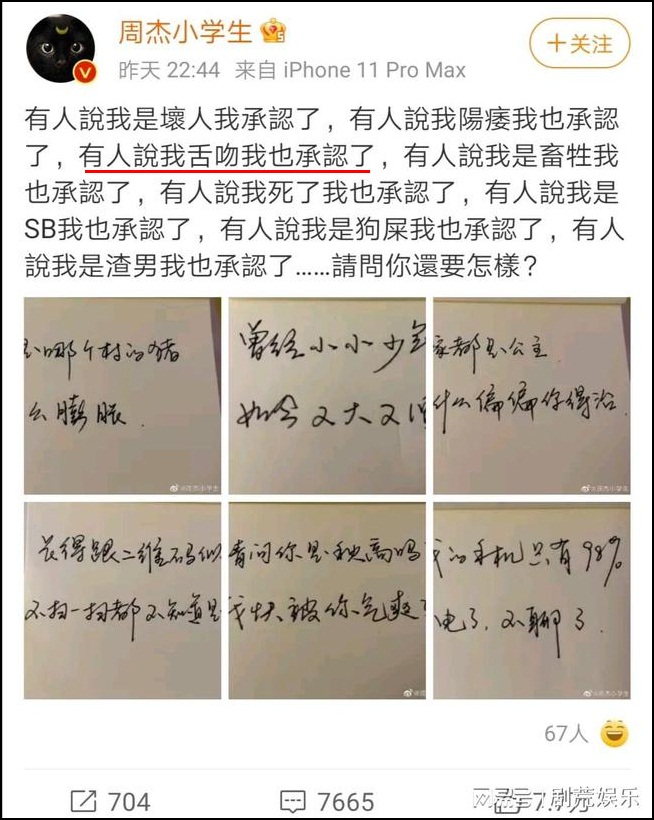 周杰小学生
+关注
昨天 22:44 来自 iPhone 11 Pro Max
有人說我是壞人我承認了，有人說我陽痿我也承認
了，有人說我舌吻我也承認了，有人說我是畜牲我
也承認了，有人說我死了我也承認了，有人說我是
SB我也承認了，有人說我是狗屎我也承認了，有人
說我是渣男我也承認了……請問你還要怎樣？
哪个村的猪
么膨胀.
曾经小小少年
如今又大又
家都是公主.
什么偏偏你得治.
@周杰小学生
长得跟二维码似
不扫一扫都不知道是
请问你是秋高吗
我快被你气爽了
的手机只有98%
电了.不聊了.
@周杰小学生
67人
704
7665
网易号/剧荒娱乐